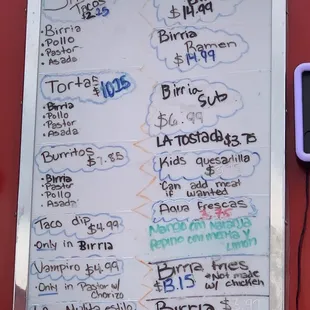 Tacos
$2.25
• Birria
• Pollo
• Pastor
• Asada
Tortas
$10.25
• Birria
• Pollo
• Pastor
• Asada
Burritos
$7.85
• Birria
• Pastor
• Pollo
• Asada
Taco dip $4.99
Only in Birria
Vampiro $4.99
Only in Pastor w/
Chorizo
$14.99
Birria
Ramen
$14.99
Birria
Sub
$6.99
LA Tostada $3.75
Kids quesadilla
$
*Can add meal
if wanted
Agua Frescas
$3.75
Mango con Naranja
Pepino con menta y
Limon
Birria fries
$13.15
*Not made
w/ chicken
Birria $